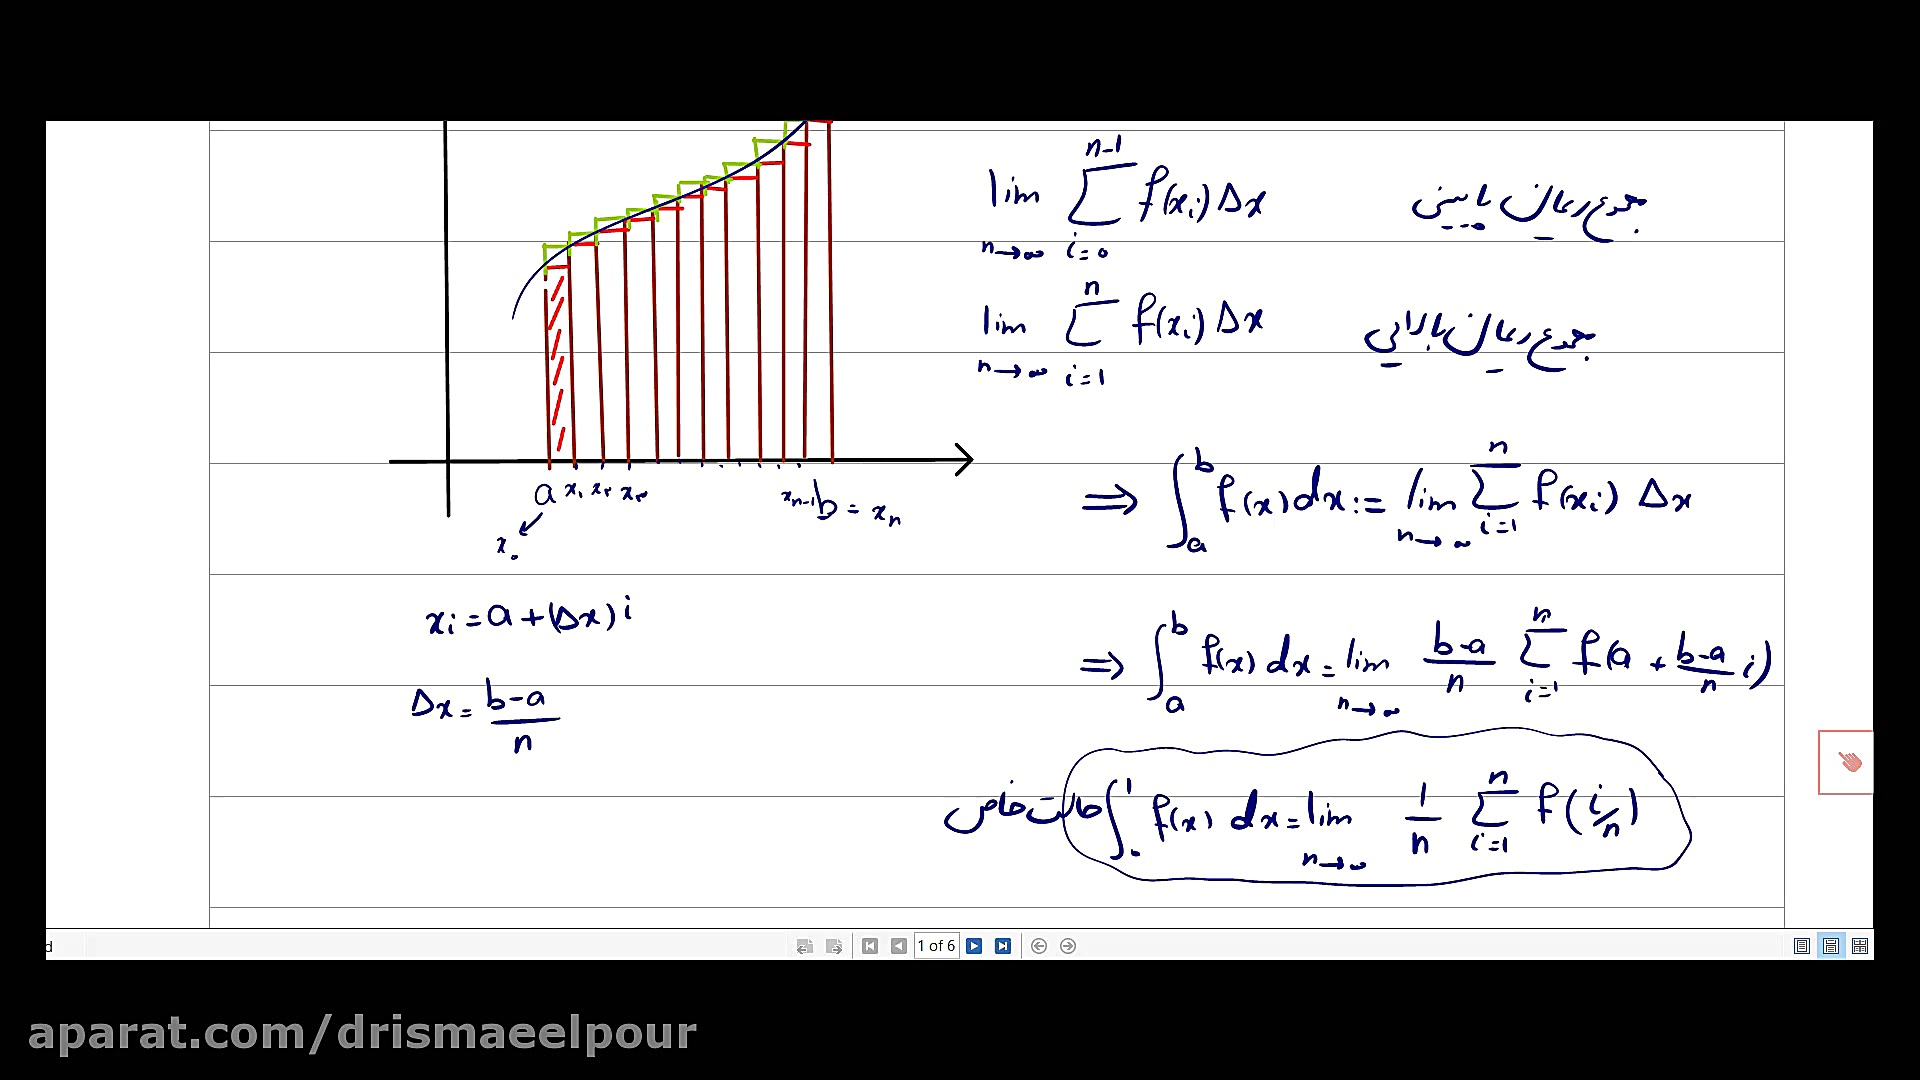 lim_{n→∞} ∑_{i=0}^{n-1} f(x_i) Δx مجموع ریمان پایینی
lim_{n→∞} ∑_{i=1}^{n} f(x_i) Δx مجموع ریمان بالایی
a x₁ x₂ x₃ x_{n-1} b = x_n
x₀
⇒ ∫_a^b f(x) dx := lim_{n→∞} ∑_{i=1}^{n} f(x_i) Δx
x_i = a + (Δx) i
⇒ ∫_a^b f(x) dx = lim_{n→∞} \frac{b-a}{n} ∑_{i=1}^{n} f(a + \frac{b-a}{n} i)
Δx = \frac{b-a}{n}
حالت خاص ∫_۰^1 f(x) dx = lim_{n→∞} \frac{1}{n} ∑_{i=1}^{n} f(i/n)
d
1 of 6
aparat.com/drismaeelpour